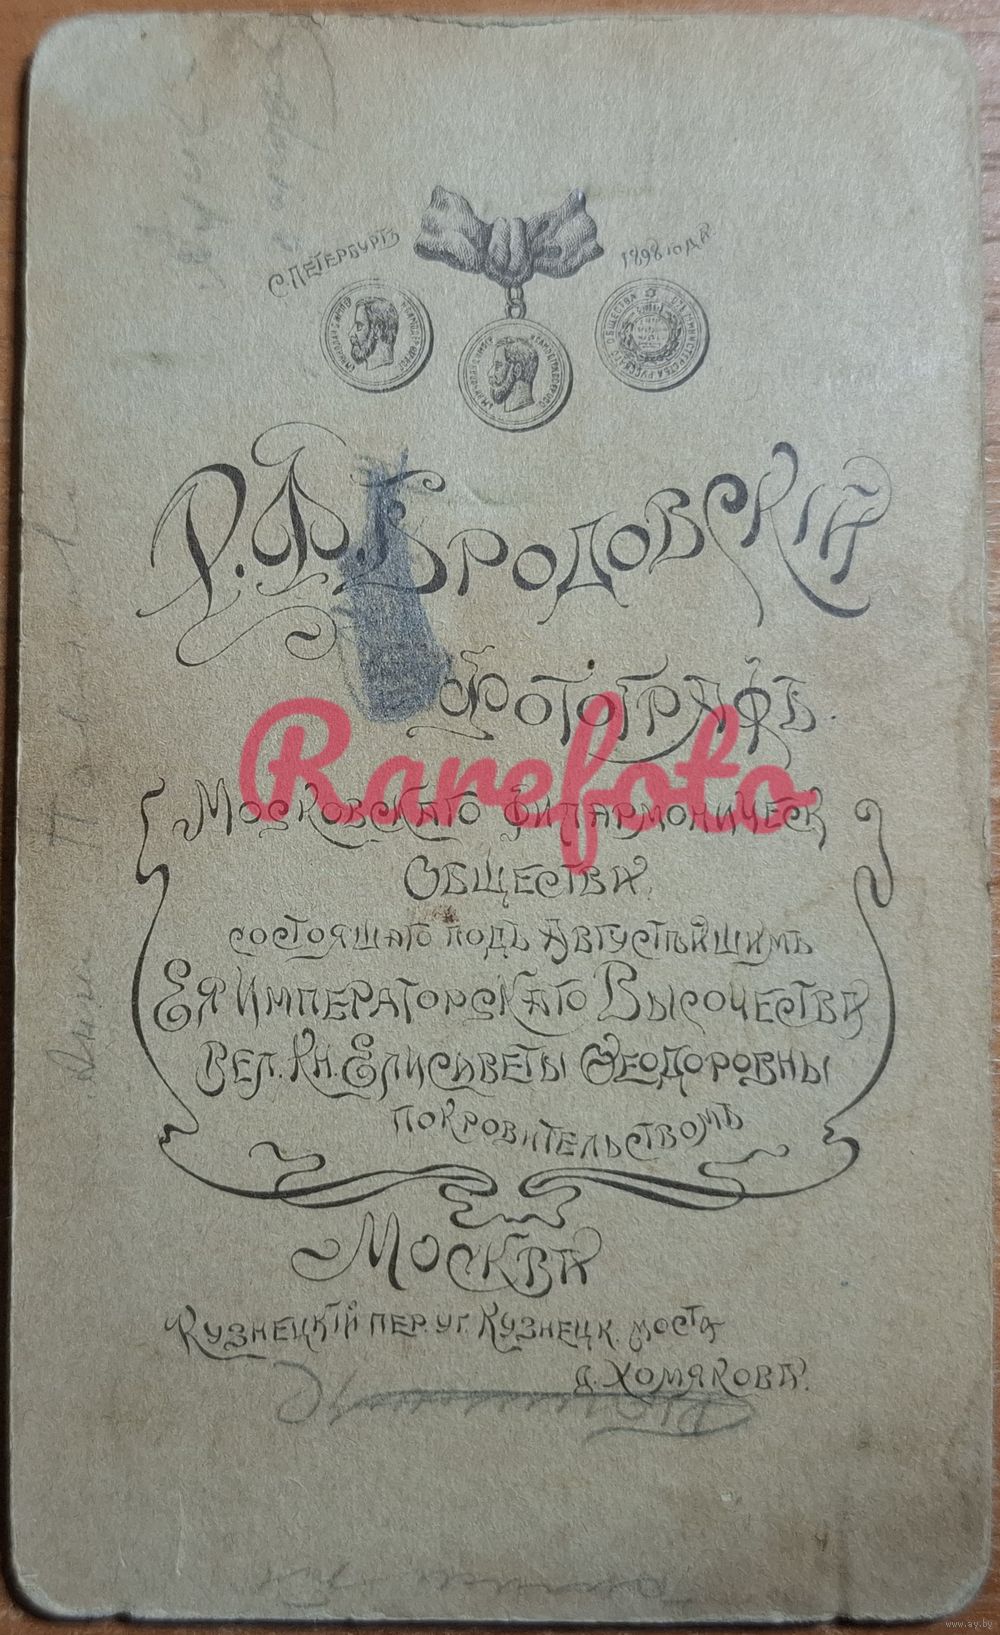 С. ПЕТЕРБУРГЪ
1898 ГОДА
Р. Ф. БРОДОВСКІЙ
ФОТОГРАФЪ.
Rarefoto
МОСКОВСКАГО ФИЛАРМОНИЧЕСК
ОБЩЕСТВА.
СОСТОЯЩАГО ПОДЪ АВГУСТѢЙШИМЪ
ЕЯ ИМПЕРАТОРСКАГО ВЫСОЧЕСТВА
ВЕЛ. КН. ЕЛИСАВЕТЫ ѲЕОДОРОВНЫ
ПОКРОВИТЕЛЬСТВОМЪ
МОСКВА
КУЗНЕЦКІЙ ПЕР. УГ. КУЗНЕЦК. МОСТА
Д. ХОМЯКОВА.
www.ay.by